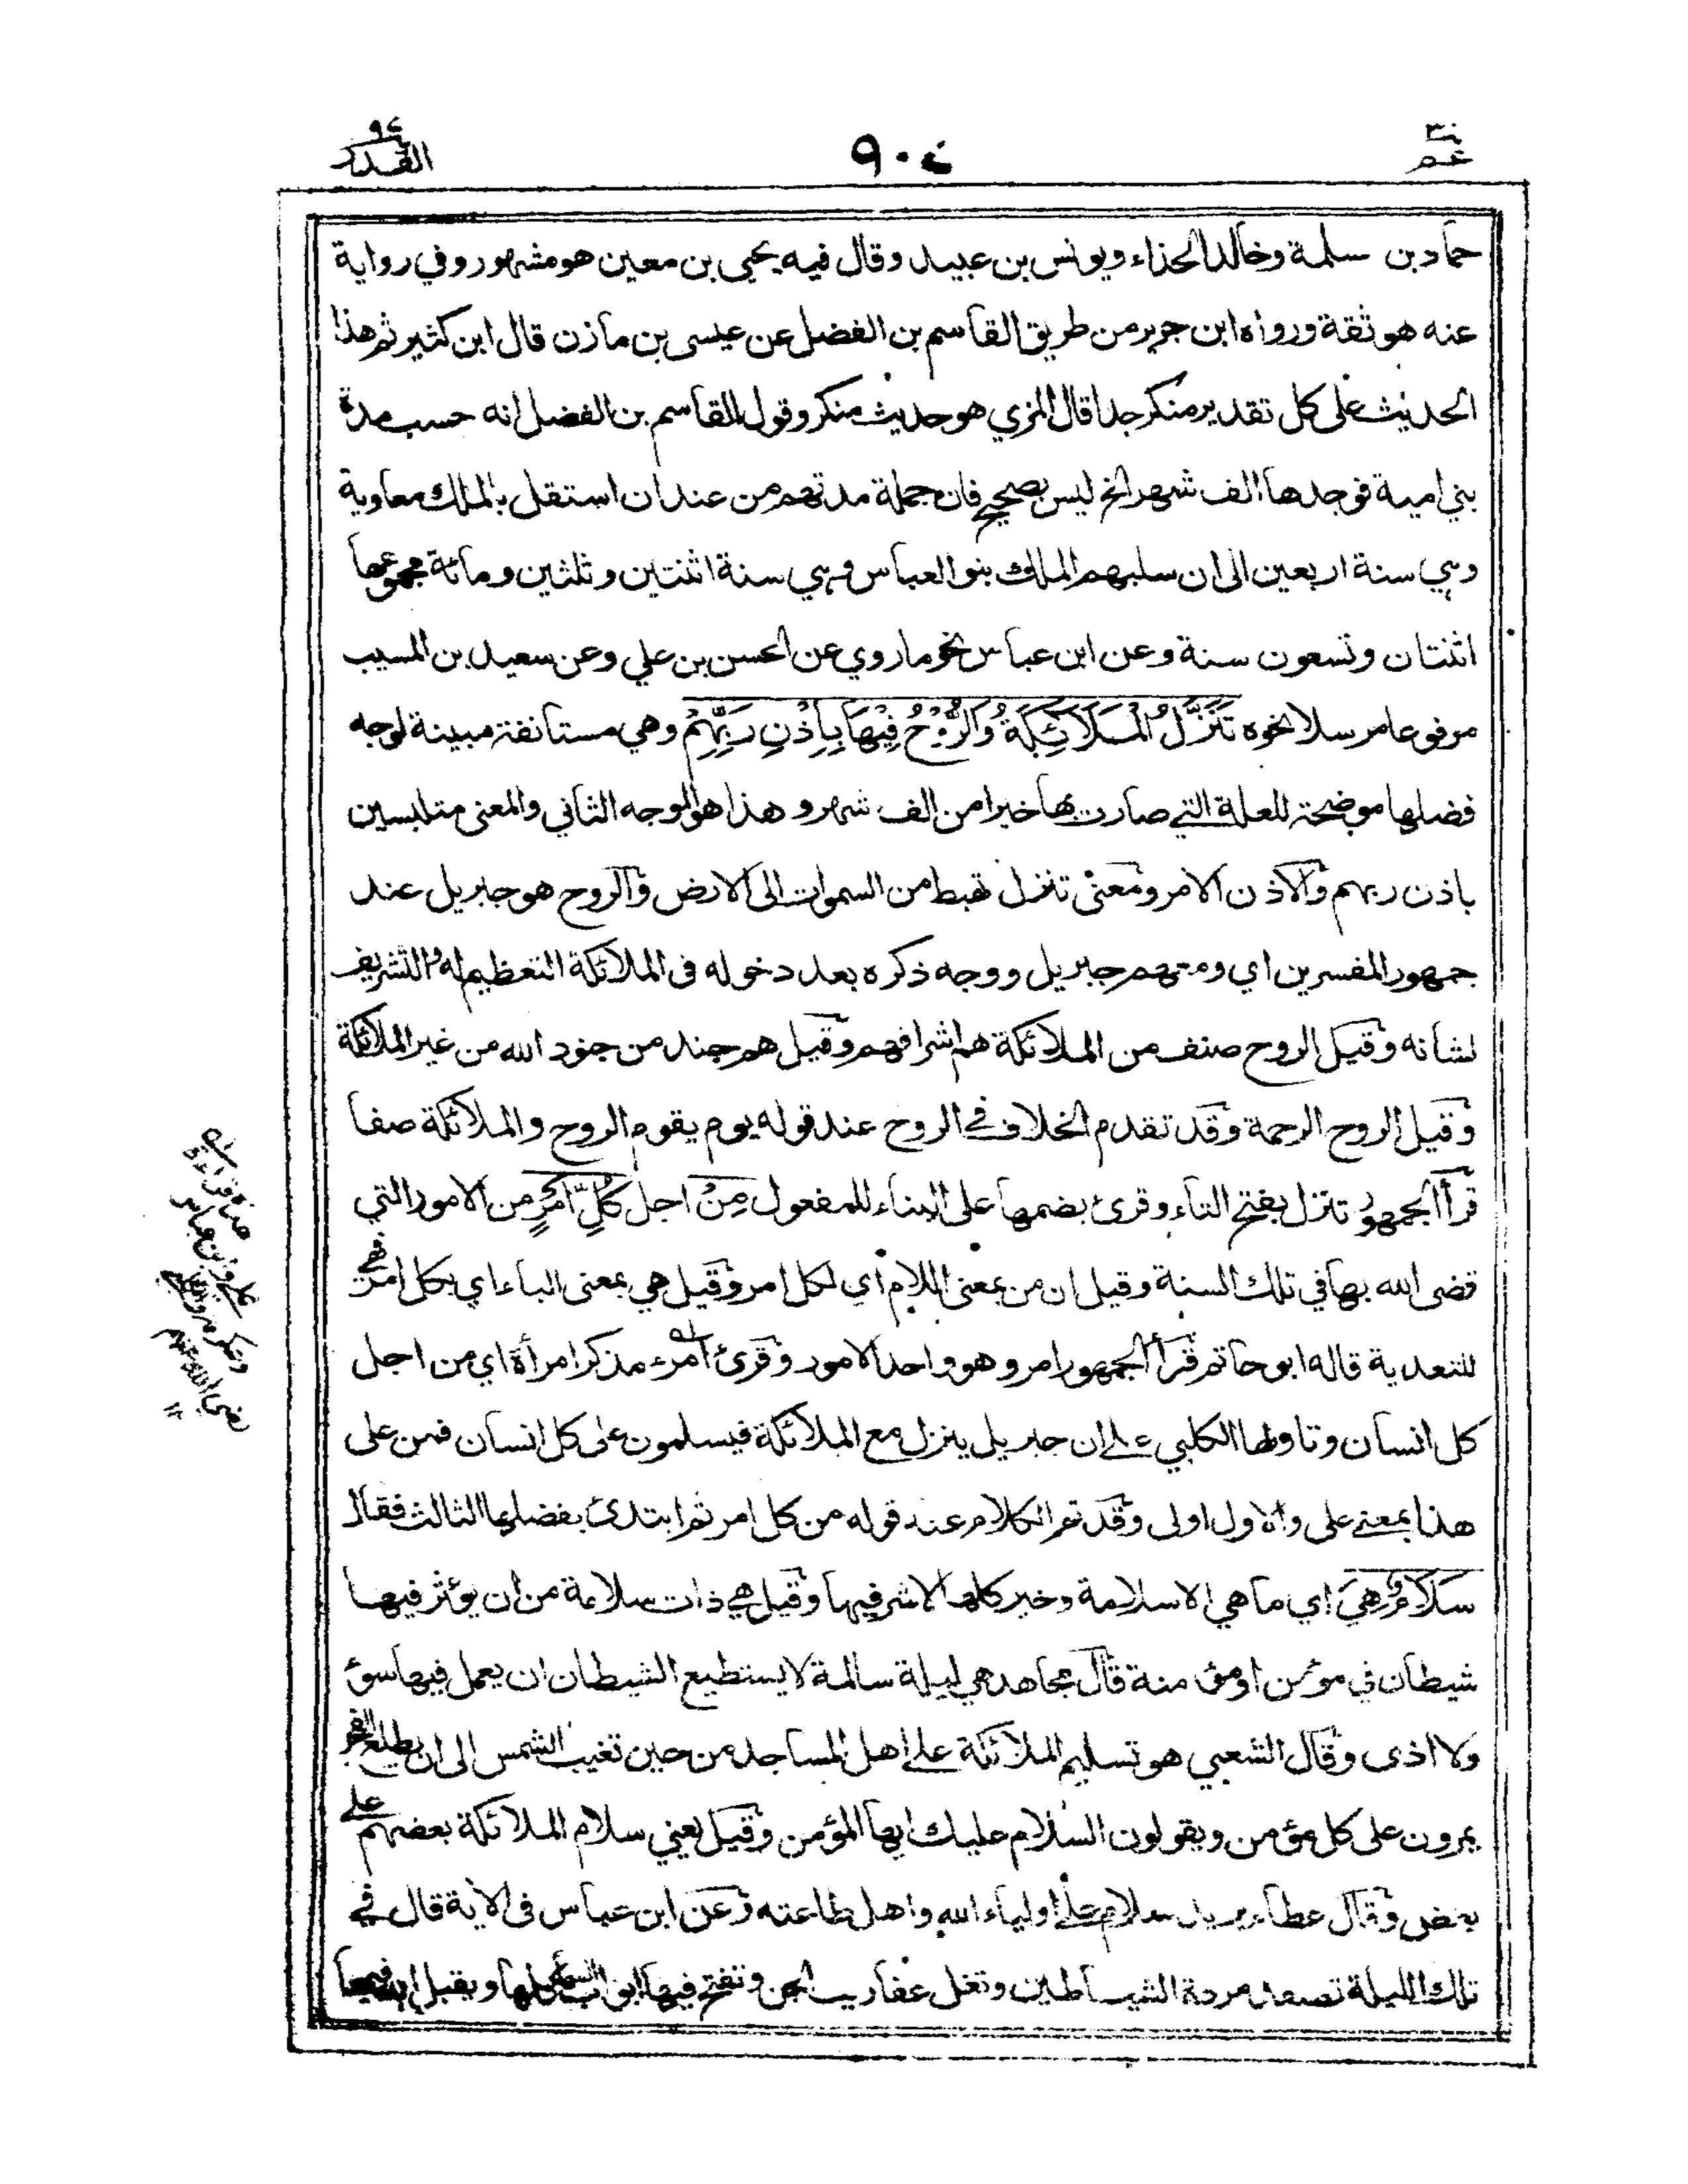 عم ٣٠
٩٠٤
القدر ٩٧
حماد بن سلمة وخالد الحذاء ويونس بن عبيد وقال فيه يحيى بن معين هو مشهور وفي رواية
عنه هو ثقة ورواه ابن جرير من طريق القاسم بن الفضل عن عيسى بن مازن قال ابن كثير ثم هذا
الحديث على كل تقدير منكر جدا قال المزي هو حديث منكر وقول القاسم بن الفضل انه حسب مدة
بني امية فوجدها الف شهر الخ ليس بصحيح فان جملة مدتهم من عند ان استقل بالملك معاوية
وهي سنة اربعين الى ان سلبهم الملك بنو العباس وهي سنة اثنتين وثلثين ومائة مجموعها
اثنتان وتسعون سنة وعن ابن عباس نحو ما روي عن الحسن بن علي وعن سعيد بن المسيب
مرفوعا مرسلا نحوه تَنَزَّلُ الْمَلَائِكَةُ وَالرُّوْحُ فِيْهَا بِاِذْنِ رَبِّهِمْ وهي مستانفة مبينة لوجه
فضلها موضحة للعلة التي صارت بها خيرا من الف شهر وهذا هو الوجه الثاني والمعنى متلبسين
باذن ربهم والاذن الامر ومعنى تنزل تهبط من السموات الى الارض والروح هو جبريل عند
جمهور المفسرين اي ومنهم جبريل ووجه ذكره بعد دخوله فى الملائكة التعظيم له والتشريف
لشانه وقيل الروح صنف من الملائكة هم اشرافهم وقيل هم جند من جنود الله من غير الملائكة
وقيل الروح الرحمة وقد تقدم الخلاف في الروح عند قوله يوم يقوم الروح والملائكة صفا
قرأ الجمهور تنزل بفتح التاء وقرئ بضمها على البناء للمفعول مِنْ اجل كُلِّ اَمْرٍ من الامور التي
قضى الله بها في تلك السنة وقيل ان من بمعنى اللام اي لكل امر وقيل هي بمعنى الباء اي بكل امر فهي
للتعدية قاله ابو حاتم قرأ الجمهور امر وهو واحد الامور وقرئ امرء مذكر امرأة اي من اجل
كل انسان وتاولها الكلبي على ان جبريل ينزل مع الملائكة فيسلمون على كل انسان فمن على
هذا بمعنى على والاول اولى وقد تم الكلام عند قوله من كل امر ثم ابتدئ بفضلها الثالث فقال
سَلَامٌ هِيَ اي ما هي الا سلامة وخير كلها لا شر فيها وقيل هي ذات سلامة من ان يؤثر فيها
شيطان في مؤمن او مؤمنة قال مجاهد هي ليلة سالمة لا يستطيع الشيطان ان يعمل فيها سوئ
ولا اذى وقال الشعبي هو تسليم الملائكة على اهل المساجد من حين تغيب الشمس الى ان يطلع الفجر
يمرون على كل مؤمن ويقولون السلام عليك ايها المؤمن وقيل يعني سلام الملائكة بعضهم على
بعض وقال عطاء يريد سلام على اولياء الله واهل طاعته وعن ابن عباس فى الاية قال في
تلك الليلة تصفد مردة الشياطين وتغل عفاريت الجن وتفتح فيها ابواب السماء كلها ويقبل الله فيها
علي وابن عباس
وعكرمة
رضي الله عنهم